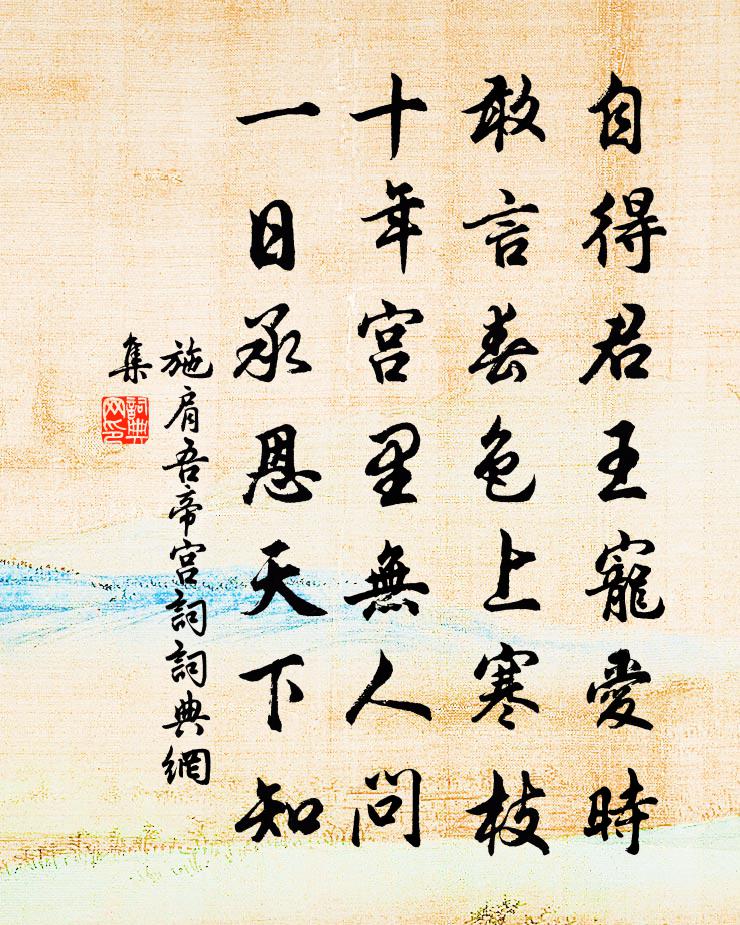 自得君王寵愛時
敢言春色上寒枝
十年宮里無人問
一日承恩天下知
施肩吾帝宮詞詞典網
集
詞典
网印